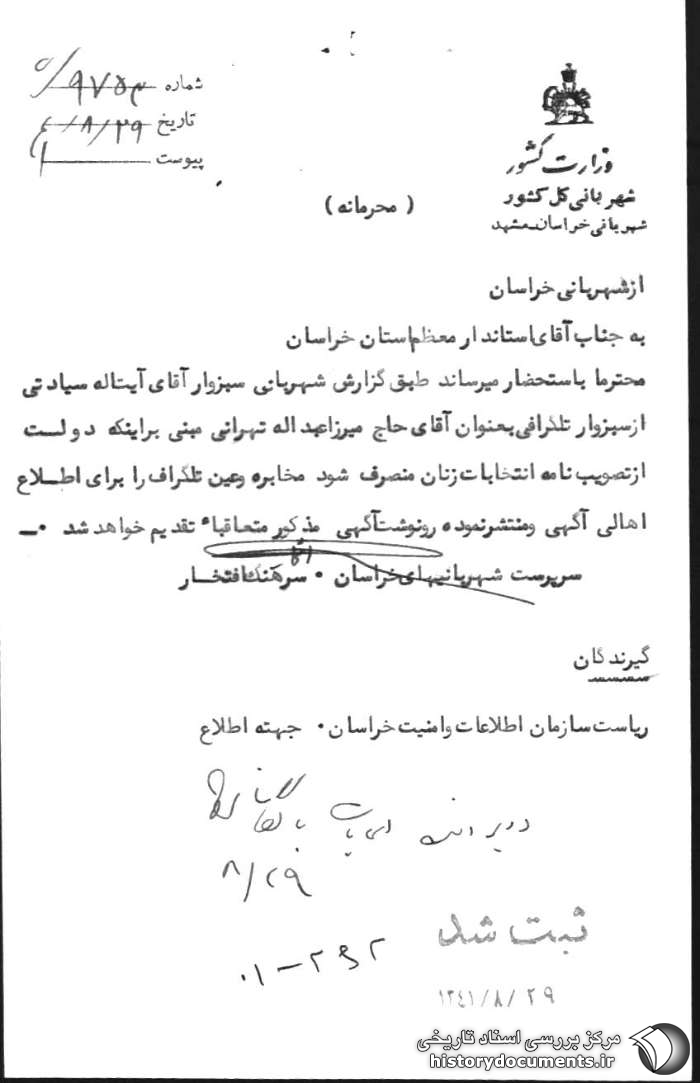 شماره ۵/۹۷۵۳
تاریخ ۴۱/۸/۲۹
پیوست
وزارت کشور
شهربانی کل کشور
شهربانی خراسان-مشهد
( محرمانه )
از شهربانی خراسان
به جناب آقای استاندار معظم استان خراسان
محترما باستحضار میرساند طبق گزارش شهربانی سبزوار آقای آیتاله سیادتی
از سبزوار تلگرافی بعنوان آقای حاج میرزا عبداله تهرانی مبنی براینکه دولت
از تصویب نامه انتخابات زنان منصرف شود مخابره وعین تلگراف را برای اطلاع
اهالی آگهی ومنتشر نموده رونوشت آگهی مذکور متعاقباً تقدیم خواهد شد ۰ـ
سرپرست شهربانیهای خراسان ۰ سرهنگ افتخار
گیرندگان
ریاست سازمان اطلاعات وامنیت خراسان ۰ جهته اطلاع
۸/۲۹
ثبت شد
۱۳۴۱/۸/۲۹
مرکز بررسی اسناد تاریخی
historydocuments.ir